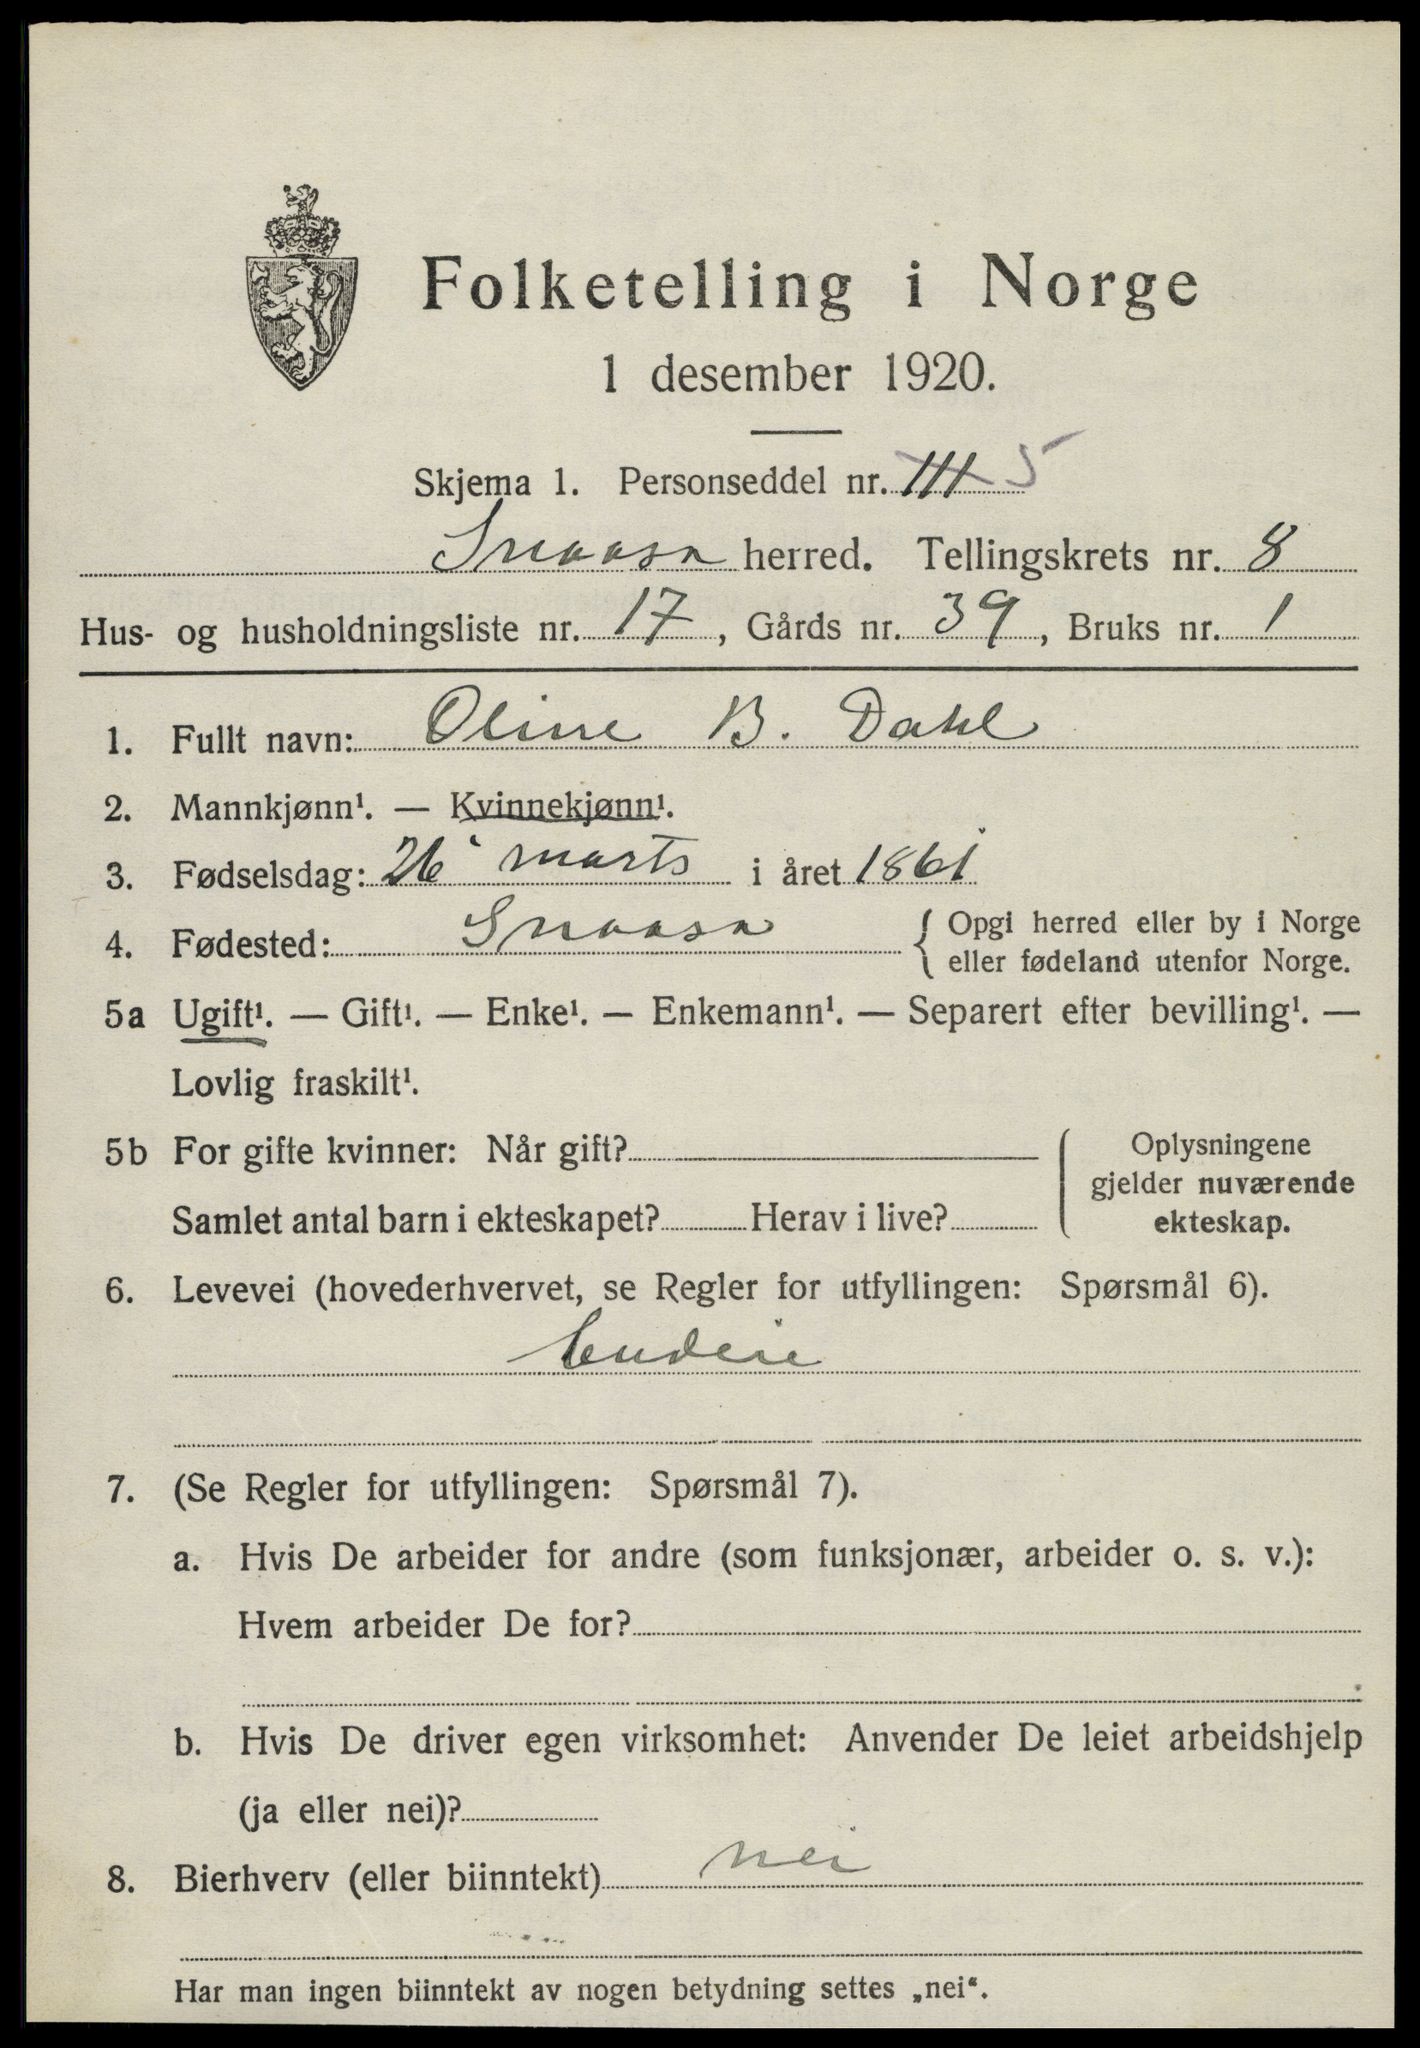 Folketelling i Norge
1 desember 1920.
Skjema 1. Personseddel nr. III 5
Snaasa herred. Tellingskrets nr. 8
Hus- og husholdningsliste nr. 17, Gårds nr. 39, Bruks nr. 1
1. Fullt navn: Oline B. Dahl
2. Mannkjønn¹. — Kvinnekjønn¹.
3. Fødselsdag: 26 marts i året 1861
4. Fødested: Snaasa { Opgi herred eller by i Norge
eller fødeland utenfor Norge.
5a Ugift¹. — Gift¹. — Enke¹. — Enkemann¹. — Separert efter bevilling¹. —
Lovlig fraskilt¹.
5b For gifte kvinner: Når gift?
Samlet antal barn i ekteskapet? Herav i live?
Oplysningene
gjelder nuværende
ekteskap.
6. Levevei (hovederhvervet, se Regler for utfyllingen: Spørsmål 6).
7. (Se Regler for utfyllingen: Spørsmål 7).
a. Hvis De arbeider for andre (som funksjonær, arbeider o. s. v.):
Hvem arbeider De for?
b. Hvis De driver egen virksomhet: Anvender De leiet arbeidshjelp
(ja eller nei)?
8. Bierhverv (eller biinntekt) nei
Har man ingen biinntekt av nogen betydning settes „nei“.